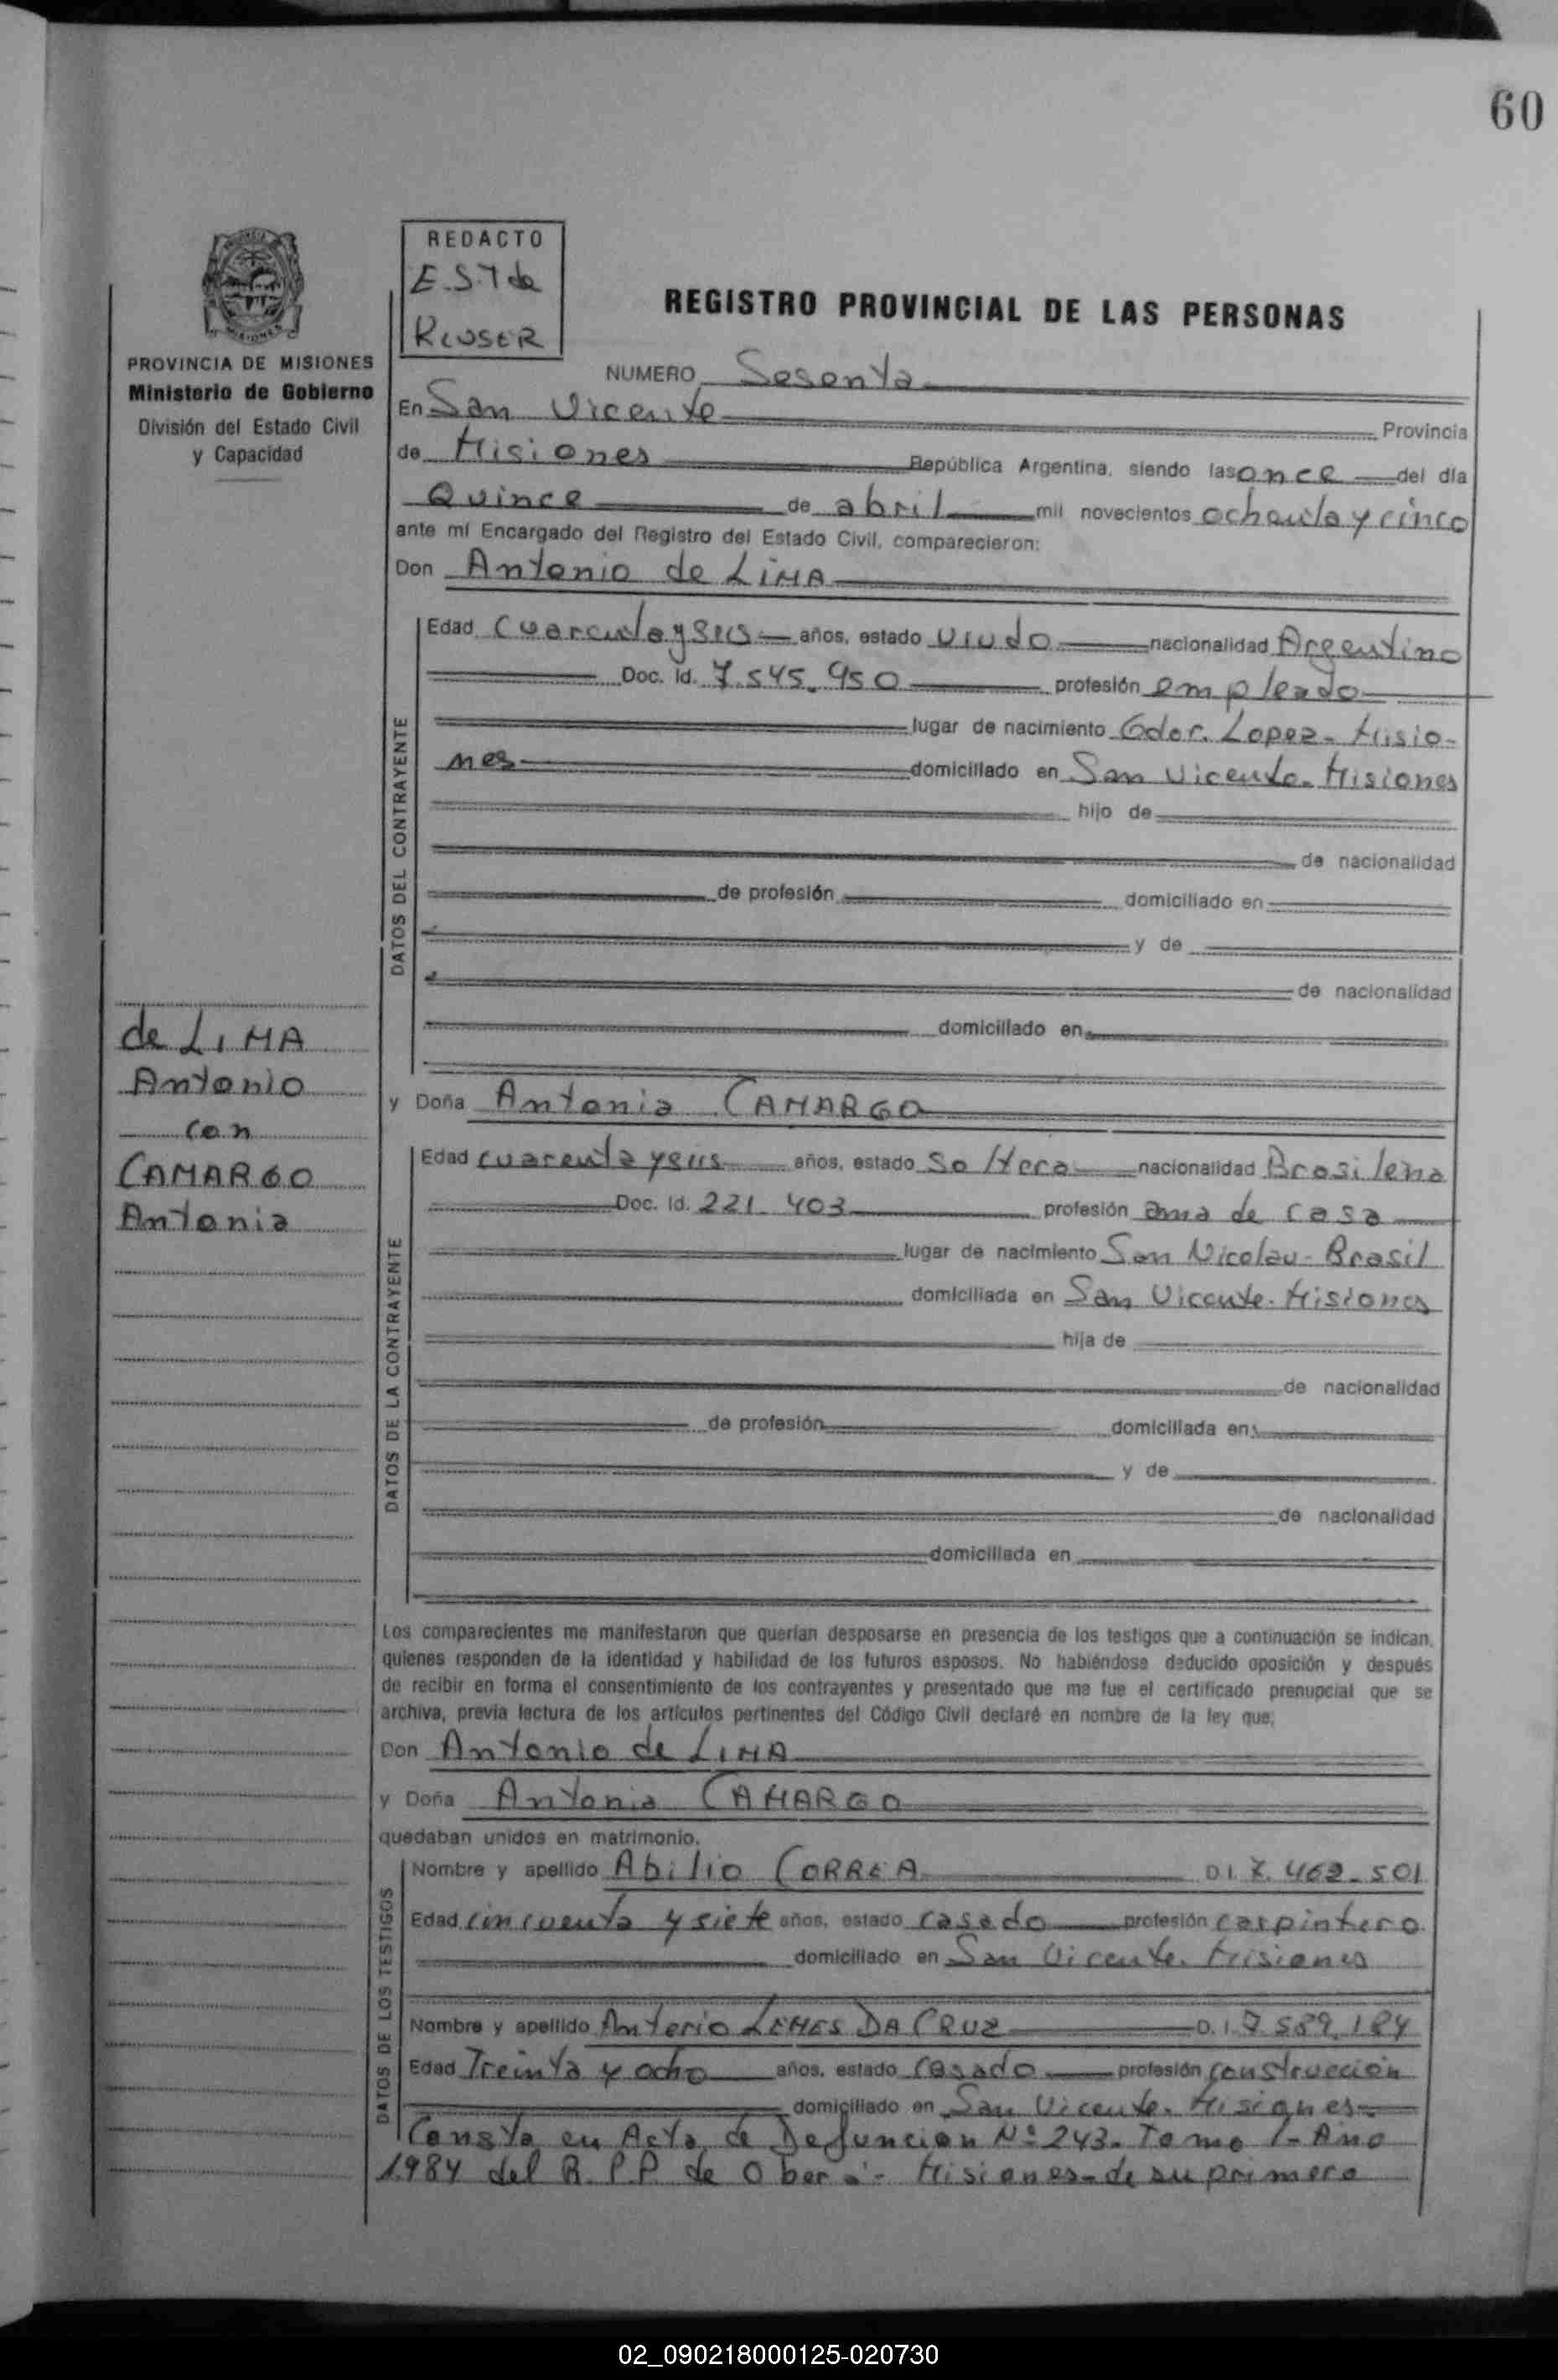 60
REDACTO
E.S.T de
KLUSER
REGISTRO PROVINCIAL DE LAS PERSONAS
PROVINCIA DE MISIONES
Ministerio de Gobierno
División del Estado Civil
y Capacidad
NUMERO Sesenta
En San Vicente Provincia
de Misiones República Argentina, siendo las once del día
Quince de abril mil novecientos ochenta y cinco
ante mí Encargado del Registro del Estado Civil, comparecieron:
Don Antonio de LIMA
DATOS DEL CONTRAYENTE
Edad Cuarenta y seis años, estado viudo nacionalidad Argentino
Doc. Id. 7.545.950 profesión empleado
lugar de nacimiento Gdor. Lopez - Misio-
nes domiciliado en San Vicente - Misiones
hijo de
de nacionalidad
de profesión domiciliado en
y de
de nacionalidad
domiciliado en
de LIMA
Antonio
con
CAMARGO
Antonia
y Doña Antonia CAMARGO
DATOS DE LA CONTRAYENTE
Edad cuarenta y seis años, estado soltera nacionalidad Brasilena
Doc. Id. 221.403 profesión ama de casa
lugar de nacimiento San Nicolau - Brasil
domiciliada en San Vicente - Misiones
hija de
de nacionalidad
de profesión domiciliada en
y de
de nacionalidad
domiciliada en
Los comparecientes me manifestaron que querían desposarse en presencia de los testigos que a continuación se indican,
quienes responden de la identidad y habilidad de los futuros esposos. No habiéndose deducido oposición y después
de recibir en forma el consentimiento de los contrayentes y presentado que me fue el certificado prenupcial que se
archiva, previa lectura de los artículos pertinentes del Código Civil declaré en nombre de la ley que:
Don Antonio de LIMA
y Doña Antonia CAMARGO
quedaban unidos en matrimonio.
DATOS DE LOS TESTIGOS
Nombre y apellido Abilio CORREA D.I. 7.462.501
Edad cincuenta y siete años, estado casado profesión carpintero
domiciliado en San Vicente - Misiones
Nombre y apellido Anterio LEMES DA CRUZ D.I. 7.589.184
Edad Treinta y ocho años, estado casado profesión construcción
domiciliado en San Vicente - Misiones
Consta en Acta de Defuncion Nº 243 - Tomo 1 - Año
1984 del R.P.P de Oberá - Misiones - de su primera
02_090218000125-020730